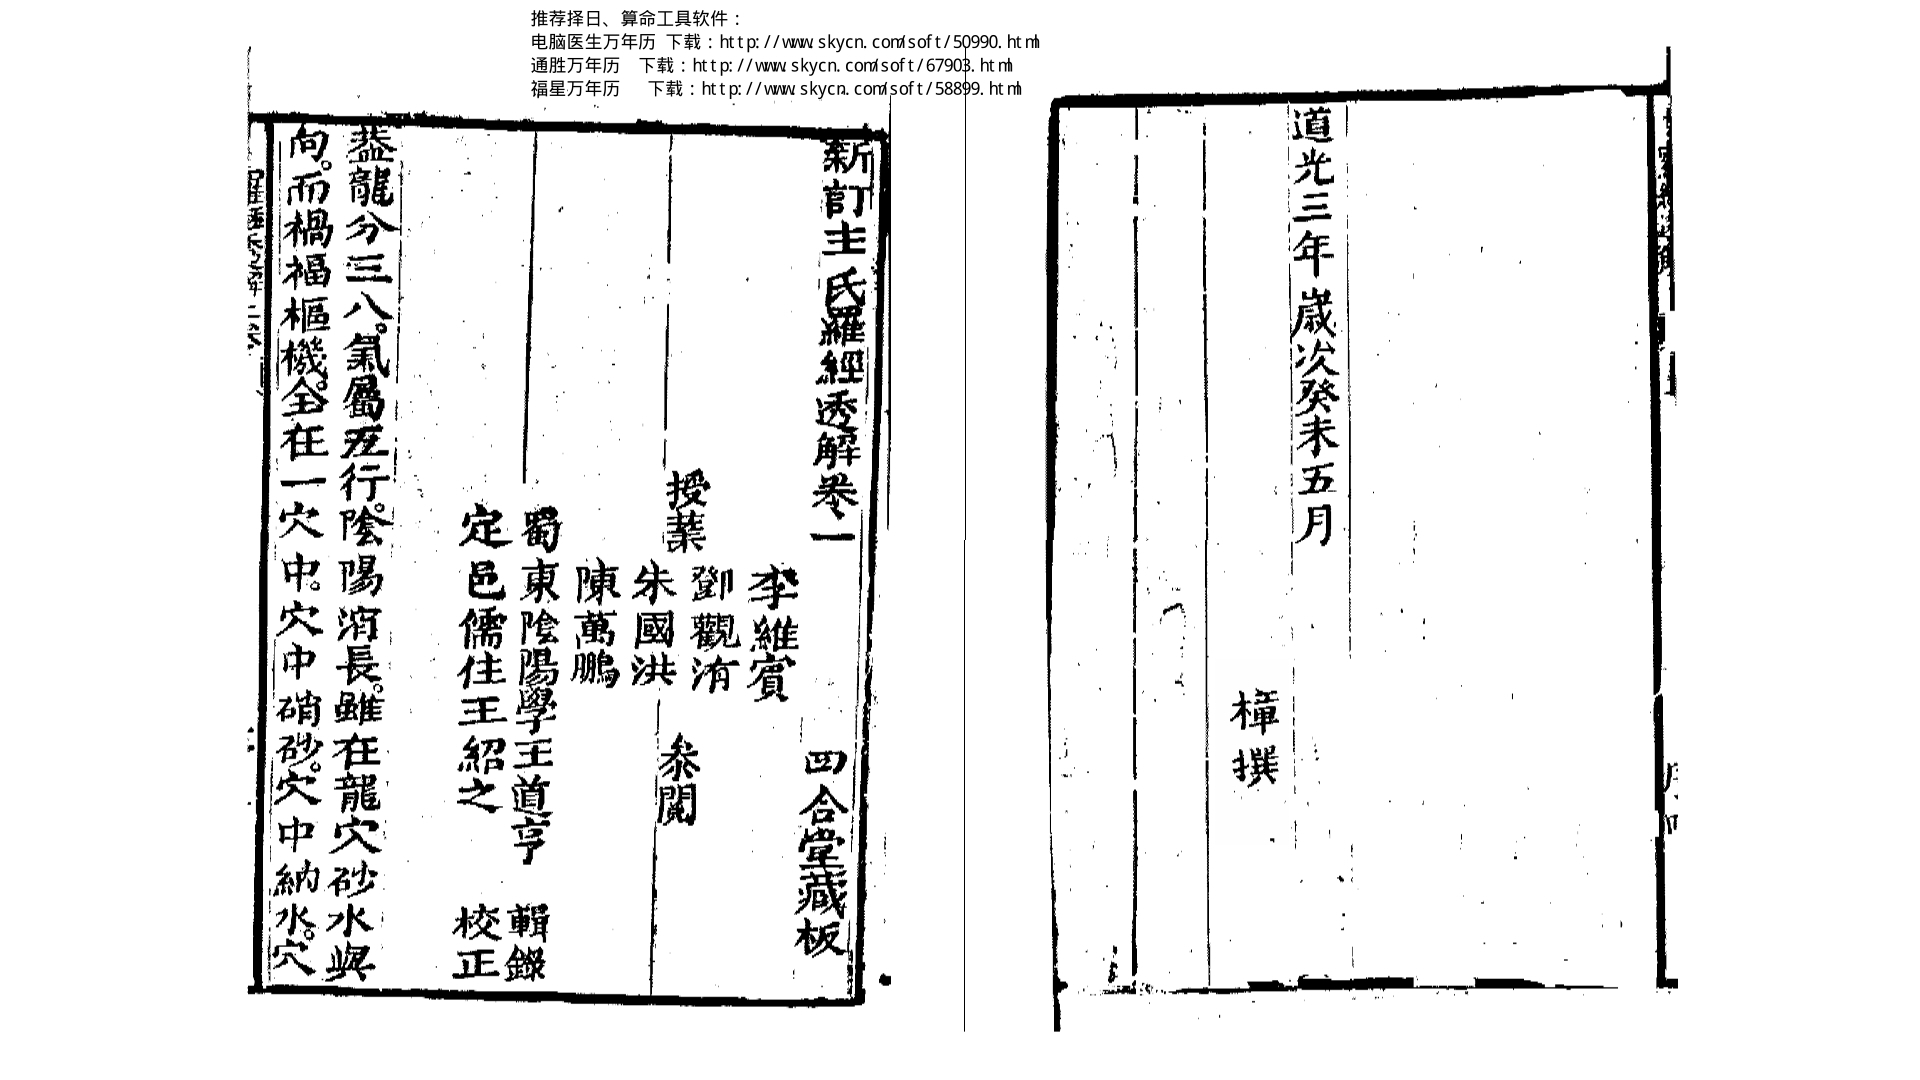 推荐择日、算命工具软件：
电脑医生万年历 下载：http://www.skycn.com/soft/50990.html
通胜万年历 下载：http://www.skycn.com/soft/67903.html
福星万年历 下载：http://www.skycn.com/soft/58899.html
道光三年歲次癸未五月
樟撰
新訂王氏羅經透解卷一 四合堂藏板
李維賓
鄧觀洧
授業 朱國洪 叅閱
陳萬鵬
蜀東陰陽學王道亨 輯錄
定邑儒住王紹之 校正
葢龍分三八。氣屬五行。陰陽消長。雖在龍穴砂水與
向。而禍福樞機。全在一穴中。穴中硝砂。穴中納水。穴